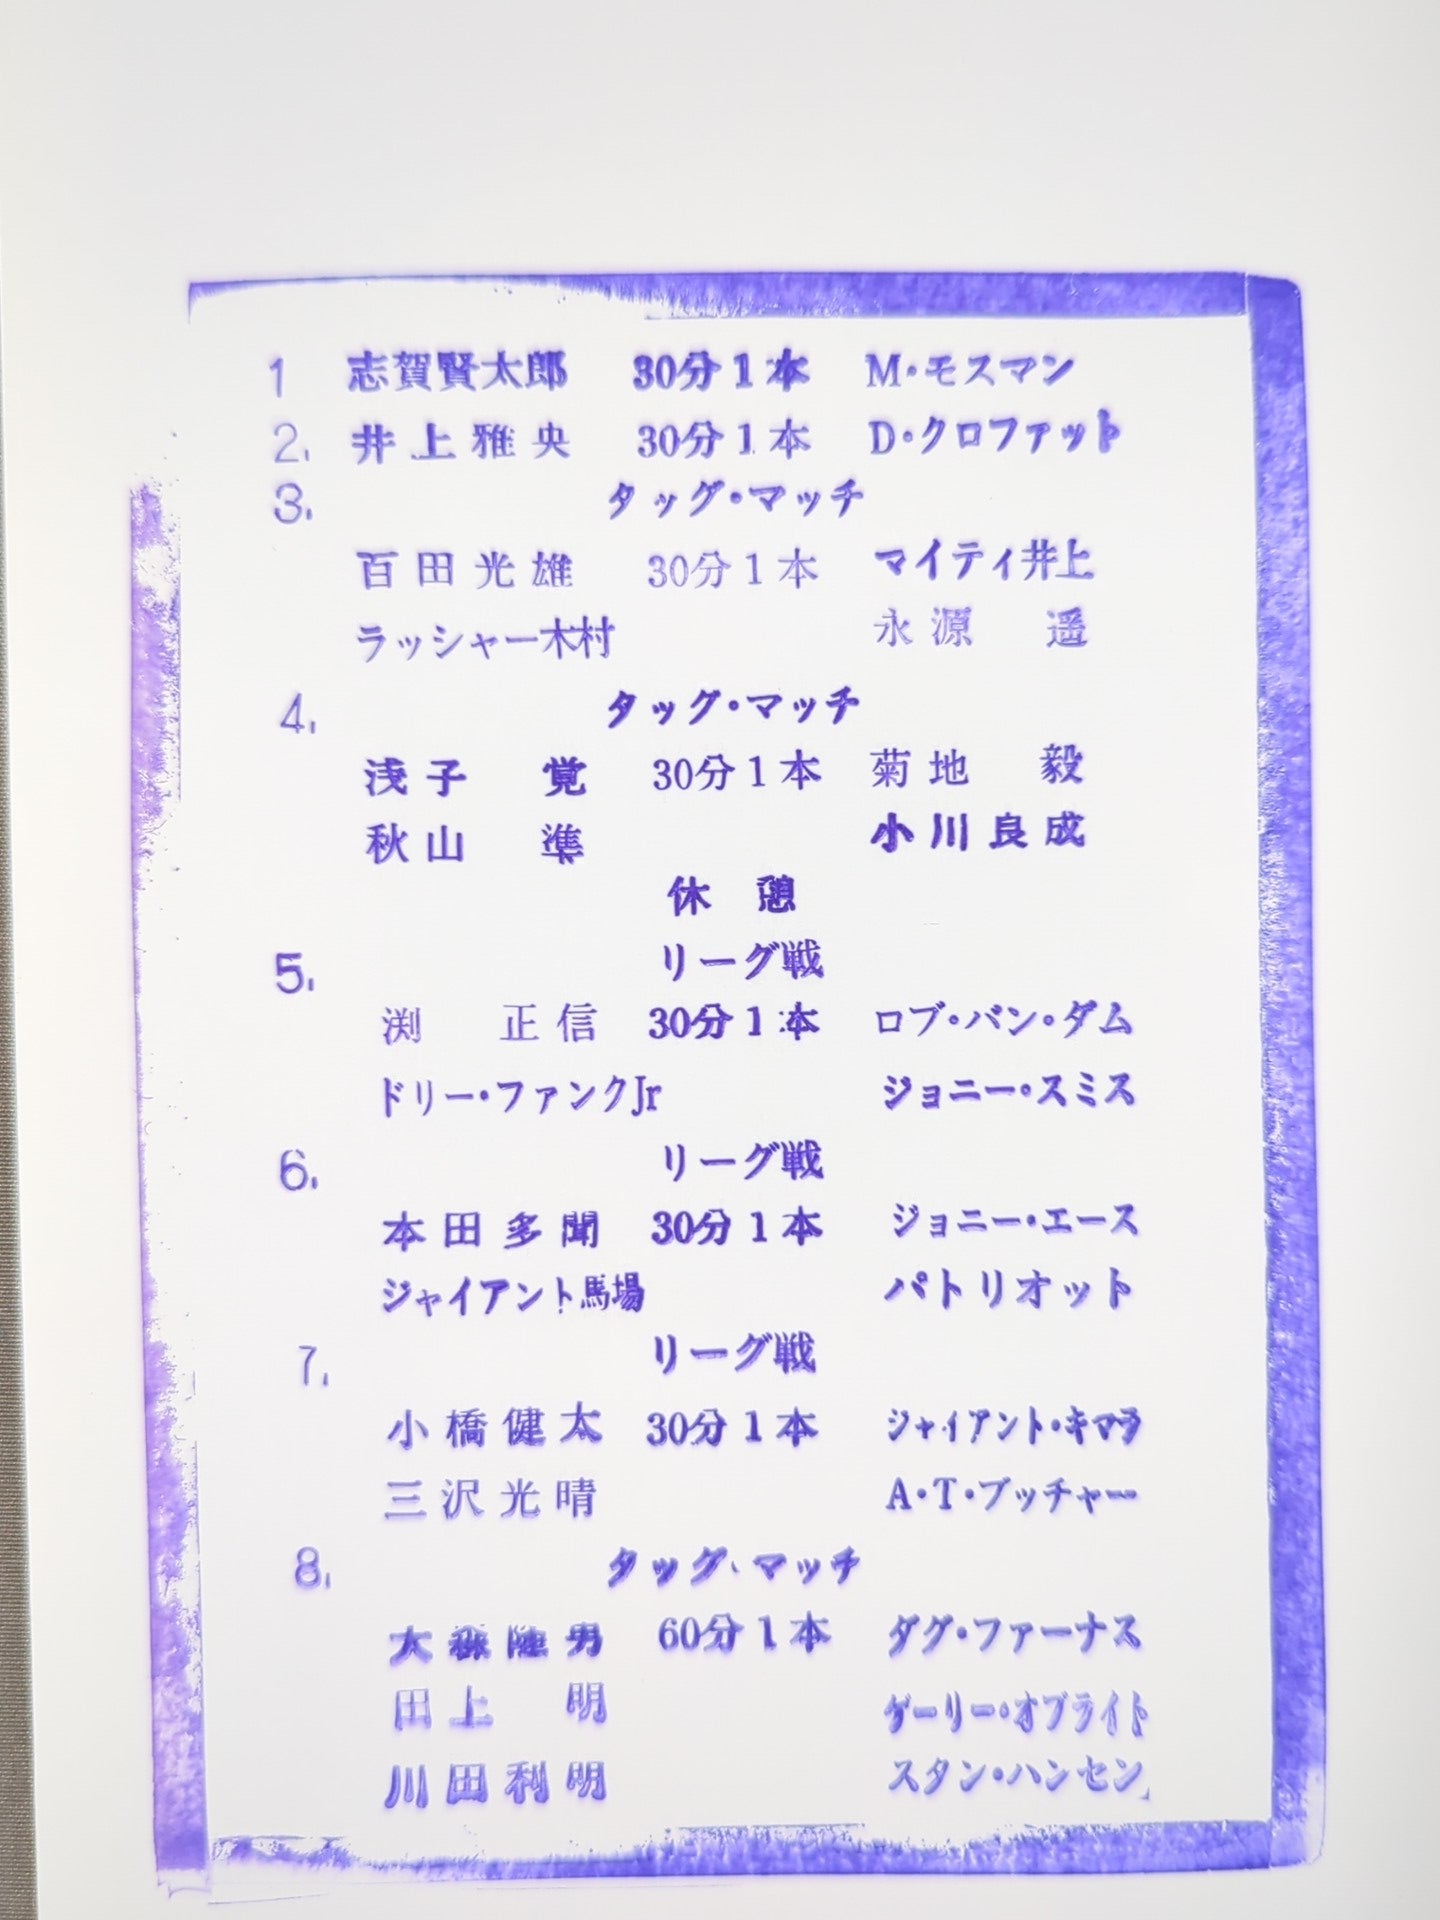 1 志賀賢太郎 30分1本 M・モスマン
2. 井上雅央 30分1本 D・クロファット
3. タッグ・マッチ
百田光雄 30分1本 マイティ井上
ラッシャー木村 永源 遥
4. タッグ・マッチ
浅子 覚 30分1本 菊地 毅
秋山 準 小川良成
休憩
5. リーグ戦
渕 正信 30分1本 ロブ・バン・ダム
ドリー・ファンクJr ジョニー・スミス
6. リーグ戦
本田多聞 30分1本 ジョニー・エース
ジャイアント馬場 パトリオット
7. リーグ戦
小橋健太 30分1本 ジャイアント・キマラ
三沢光晴 A・T・ブッチャー
8. タッグ・マッチ
大森隆男 60分1本 ダグ・ファーナス
田上 明 ゲーリー・オブライト
川田利明 スタン・ハンセン